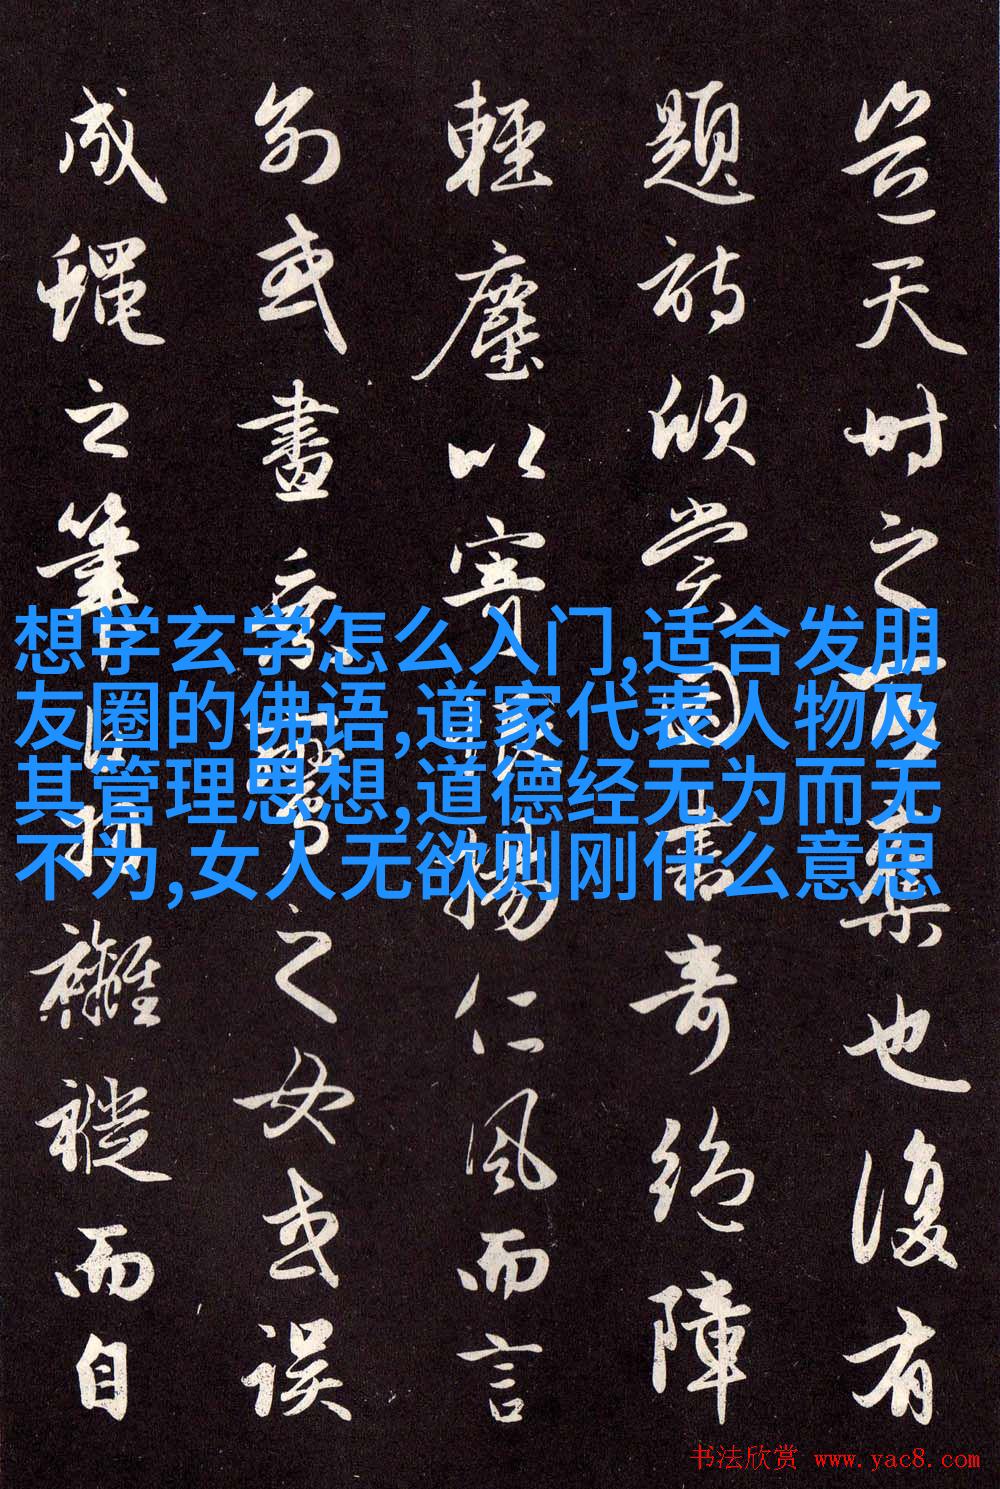 岂天时之也復有
题诗欣赏图書奇絶障
輕塵以寄揚仁風而言
别或畫鸞之女或误
成蠅之筆羽褵褷而自
想学玄学怎么入门,适合发朋
友圈的佛语,道家代表人物及
其管理思想,道德经无为而无
不为,女人无欲则刚什么意思
书法欣赏 www.yac8.com